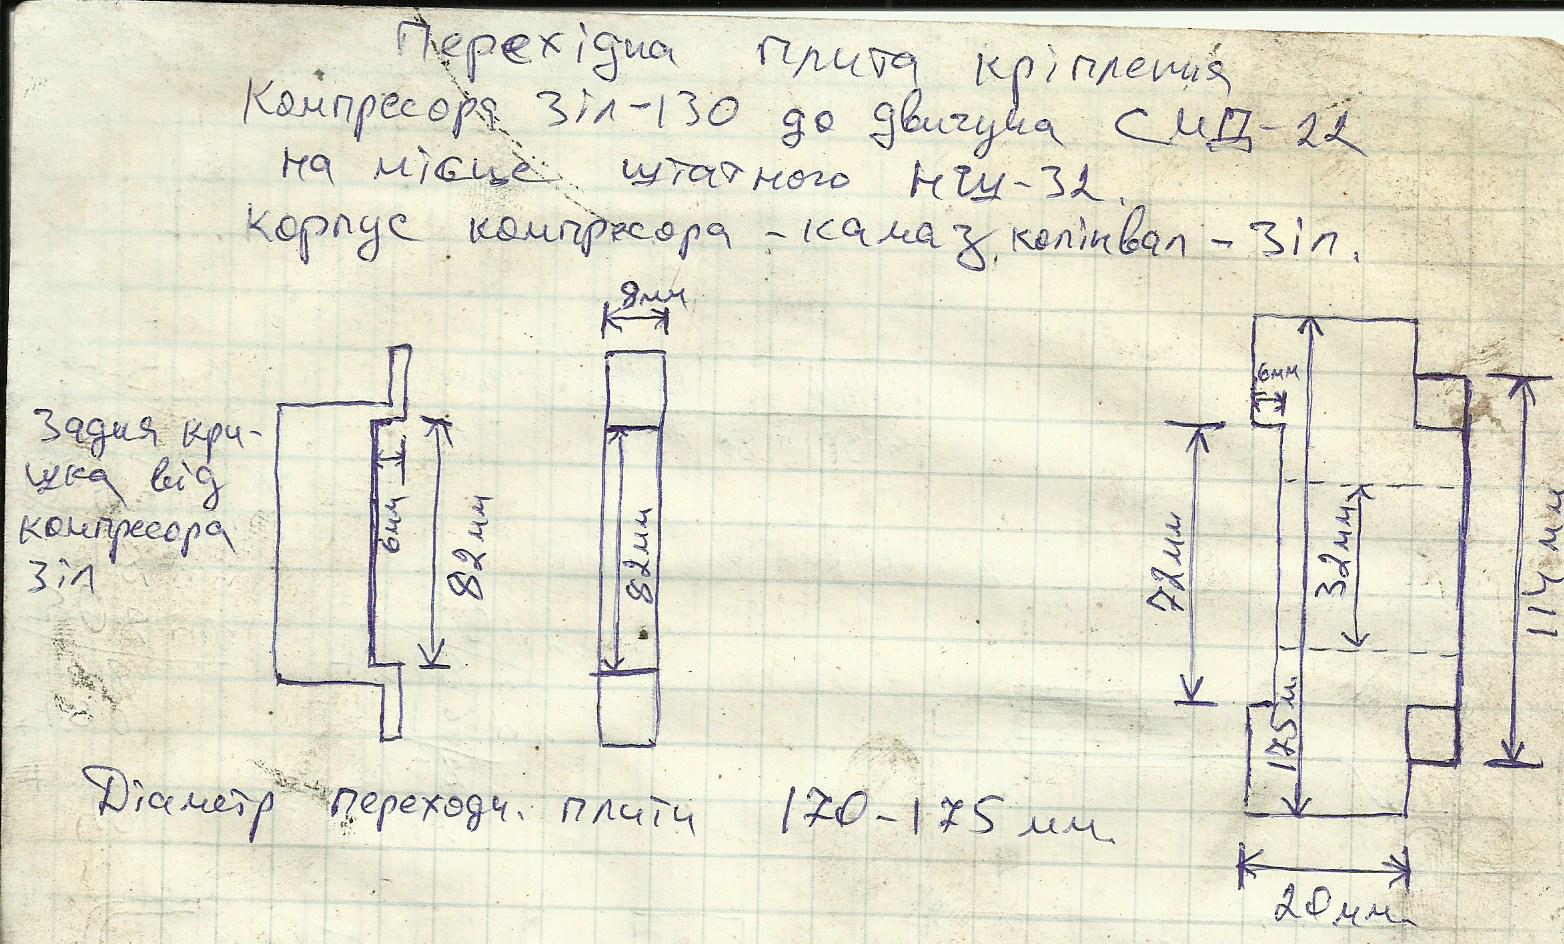 Перехідна плита кріплення
Компресора Зіл-130 до двигуна СМД-22
на місце штатного НШ-32.
Корпус компресора - камаз, колінвал - Зіл.
8мм
6мм
Задня кри-
шка від
компресора
Зіл
6мм
82мм
82мм
72мм
32мм
114мм
175м.
Діаметр переходн. плити 170-175 мм.
20мм.